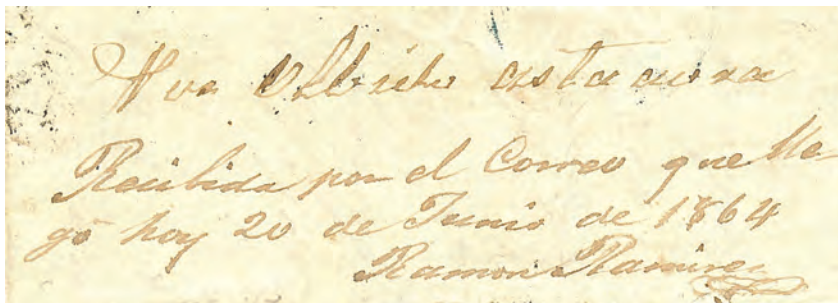 asta aora
Recibida por el Correo que lle-
gó hoy 20 de Junio de 1864
Ramon Ramirez